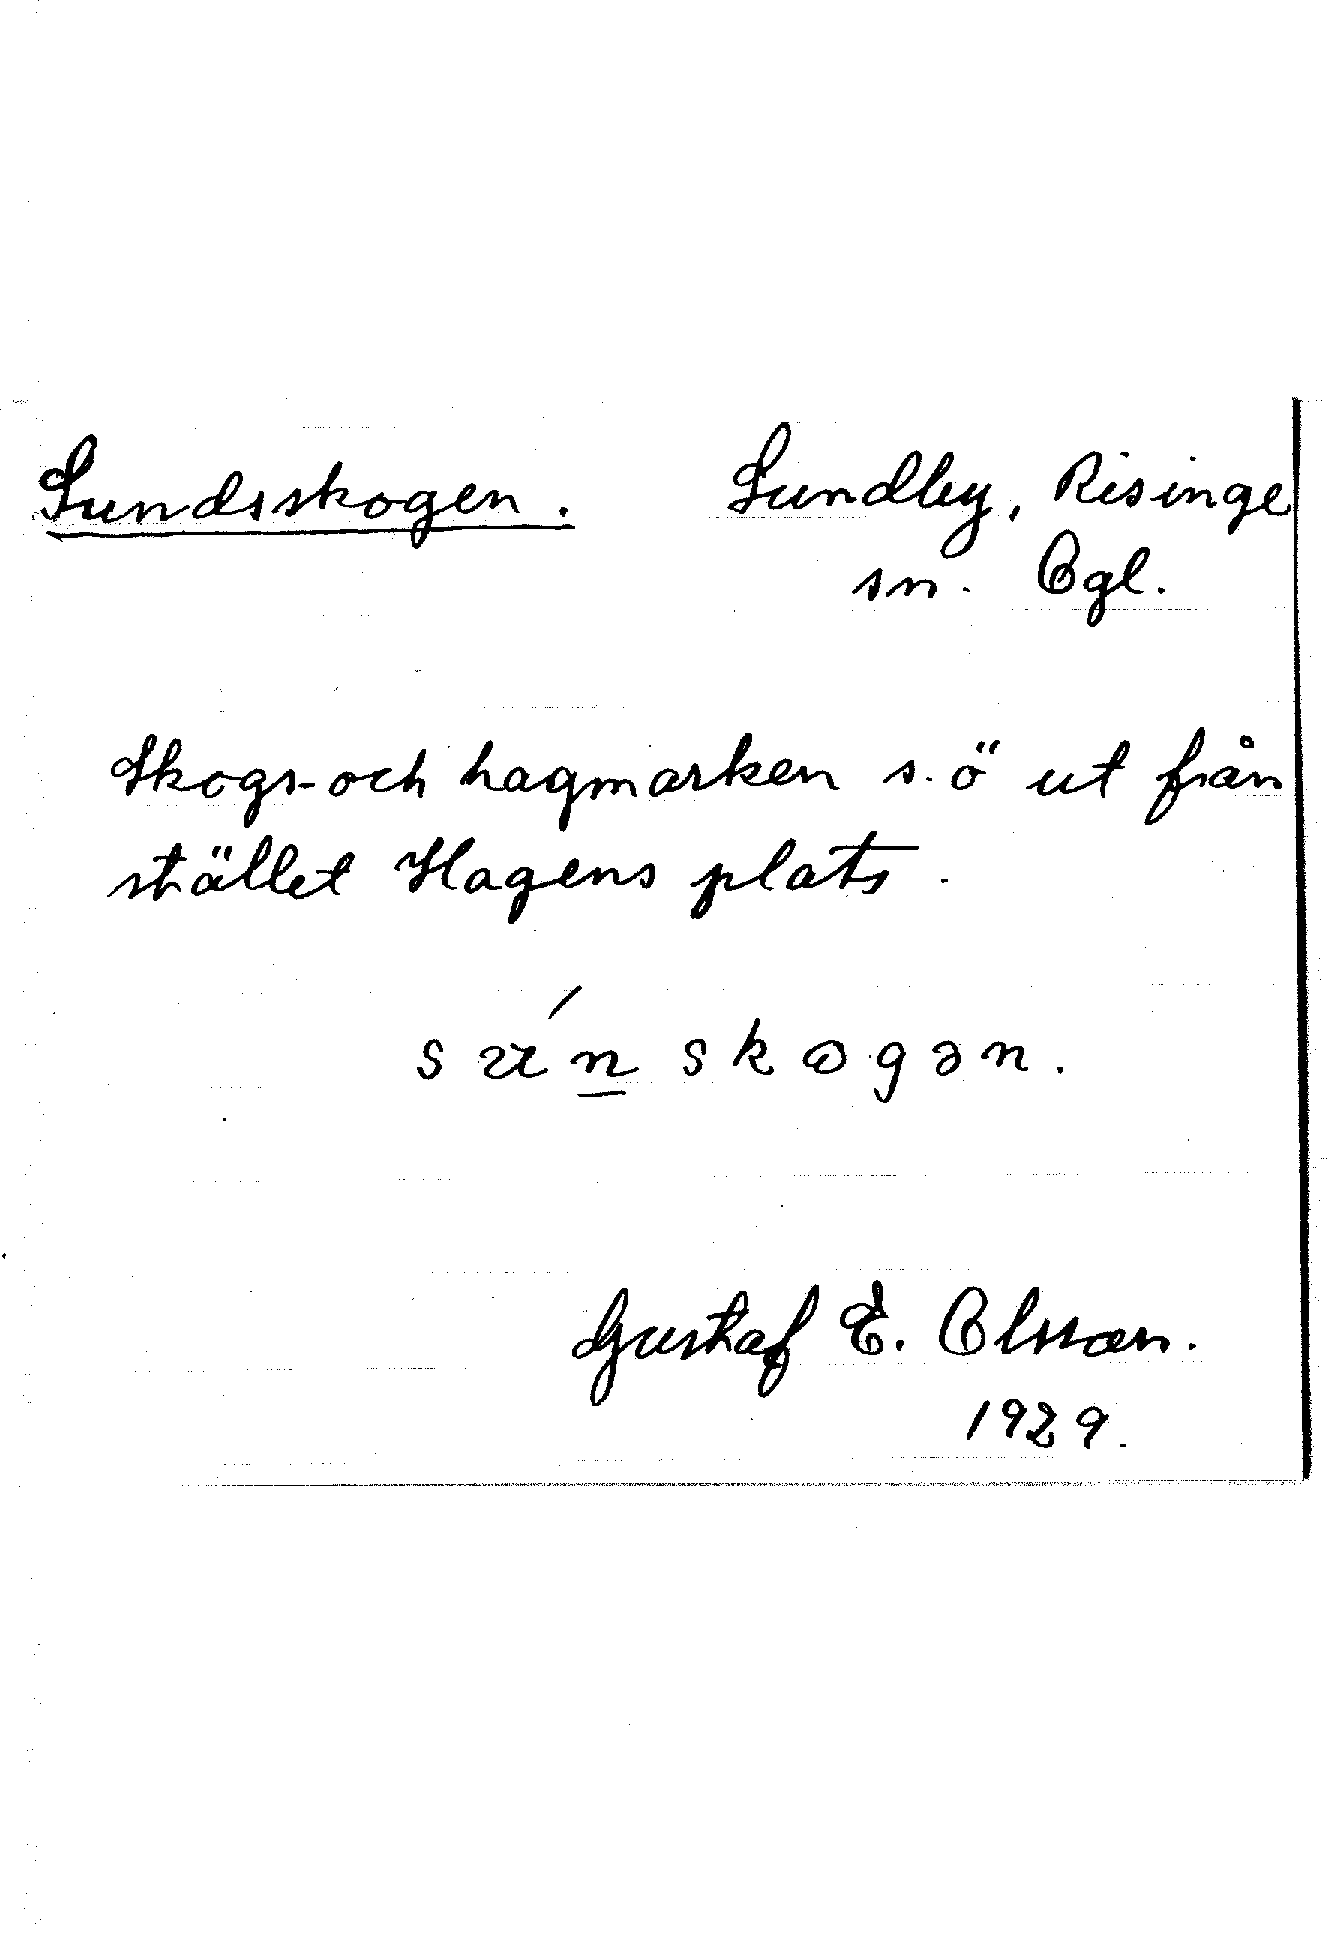 Sundsskogen. Sundby, Risinge
sn. Ögl.
Skogs- och hagmarken s. ö ut från
stället Hagens plats.
sún̲skogən.
Gustaf E. Olsson.
1929.